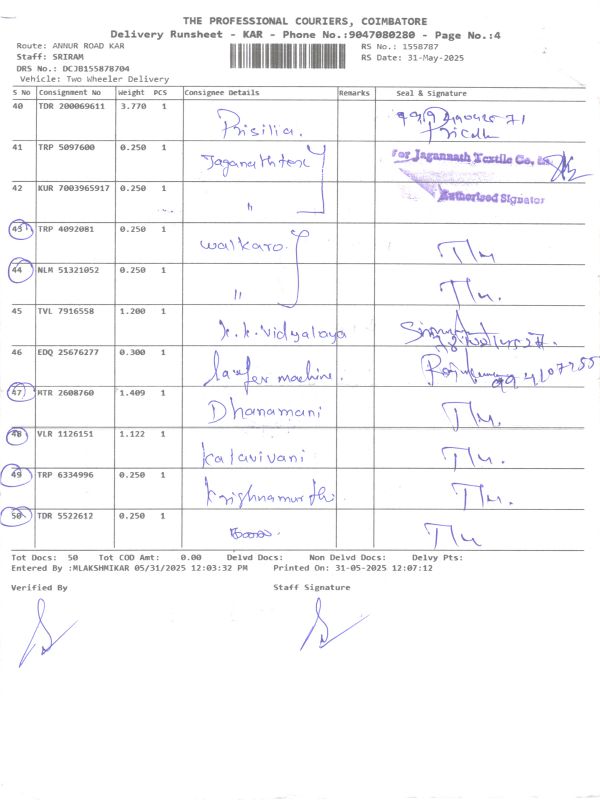 THE PROFESSIONAL COURIERS, COIMBATORE
Delivery Runsheet - KAR - Phone No.:9047080280 - Page No.:4
Route: ANNUR ROAD KAR
RS No.: 1558787
Staff: SRIRAM
RS Date: 31-May-2025
DRS No.: DCJB155878704
Vehicle: Two Wheeler Delivery
S No Consignment No Weight PCS Consignee Details Remarks Seal & Signature
40 TDR 200069611 3.770 1 Prisilia.
41 TRP 5097600 0.250 1 Jaganathtex
for Jagannath Textile Co,
42 KUR 7003965917 0.250 1 "
Authorised Signator
43 TRP 4092081 0.250 1 walkaro
44 NLM 51321052 0.250 1 "
45 TVL 7916558 1.200 1 k.k.vidyalaya
46 EDQ 25676277 0.300 1 machine.
47 MTR 2608760 1.409 1 Dhanamani
48 VLR 1126151 1.122 1 kalavivani
49 TRP 6334996 0.250 1 krishnamurthi
50 TDR 5522612 0.250 1
Tot Docs: 50 Tot COD Amt: 0.00 Delvd Docs: Non Delvd Docs: Delvy Pts:
Entered By :MLAKSHMIKAR 05/31/2025 12:03:32 PM Printed On: 31-05-2025 12:07:12
Verified By Staff Signature